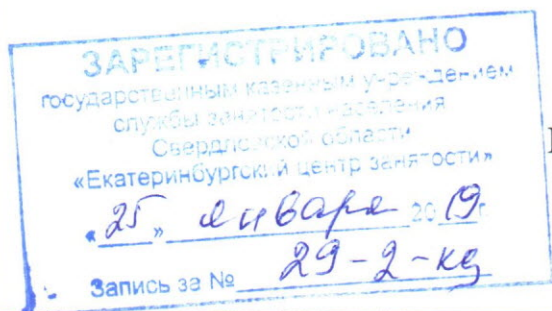 ЗАРЕГИСТРИРОВАНО
государственным казенным учреждением
службы занятости населения
Свердловской области
«Екатеринбургский центр занятости»
«25» января 2019г.
Запись за № 29-2-кд